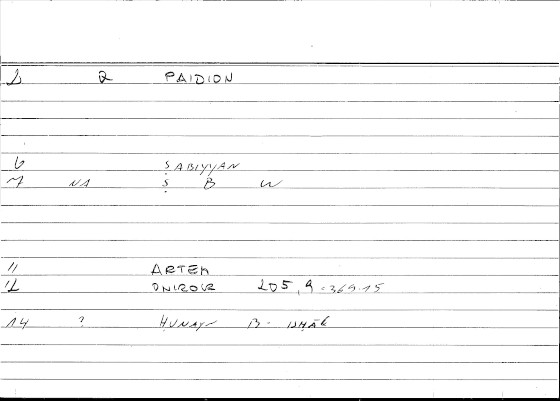 2 2 PAIDION
6 ṢABIYYAN
7 NA Ṣ B W
11 ARTEM
12 ONIROCR 205,9 = 369.15
14 ? HUNAYN B. ISHĀK